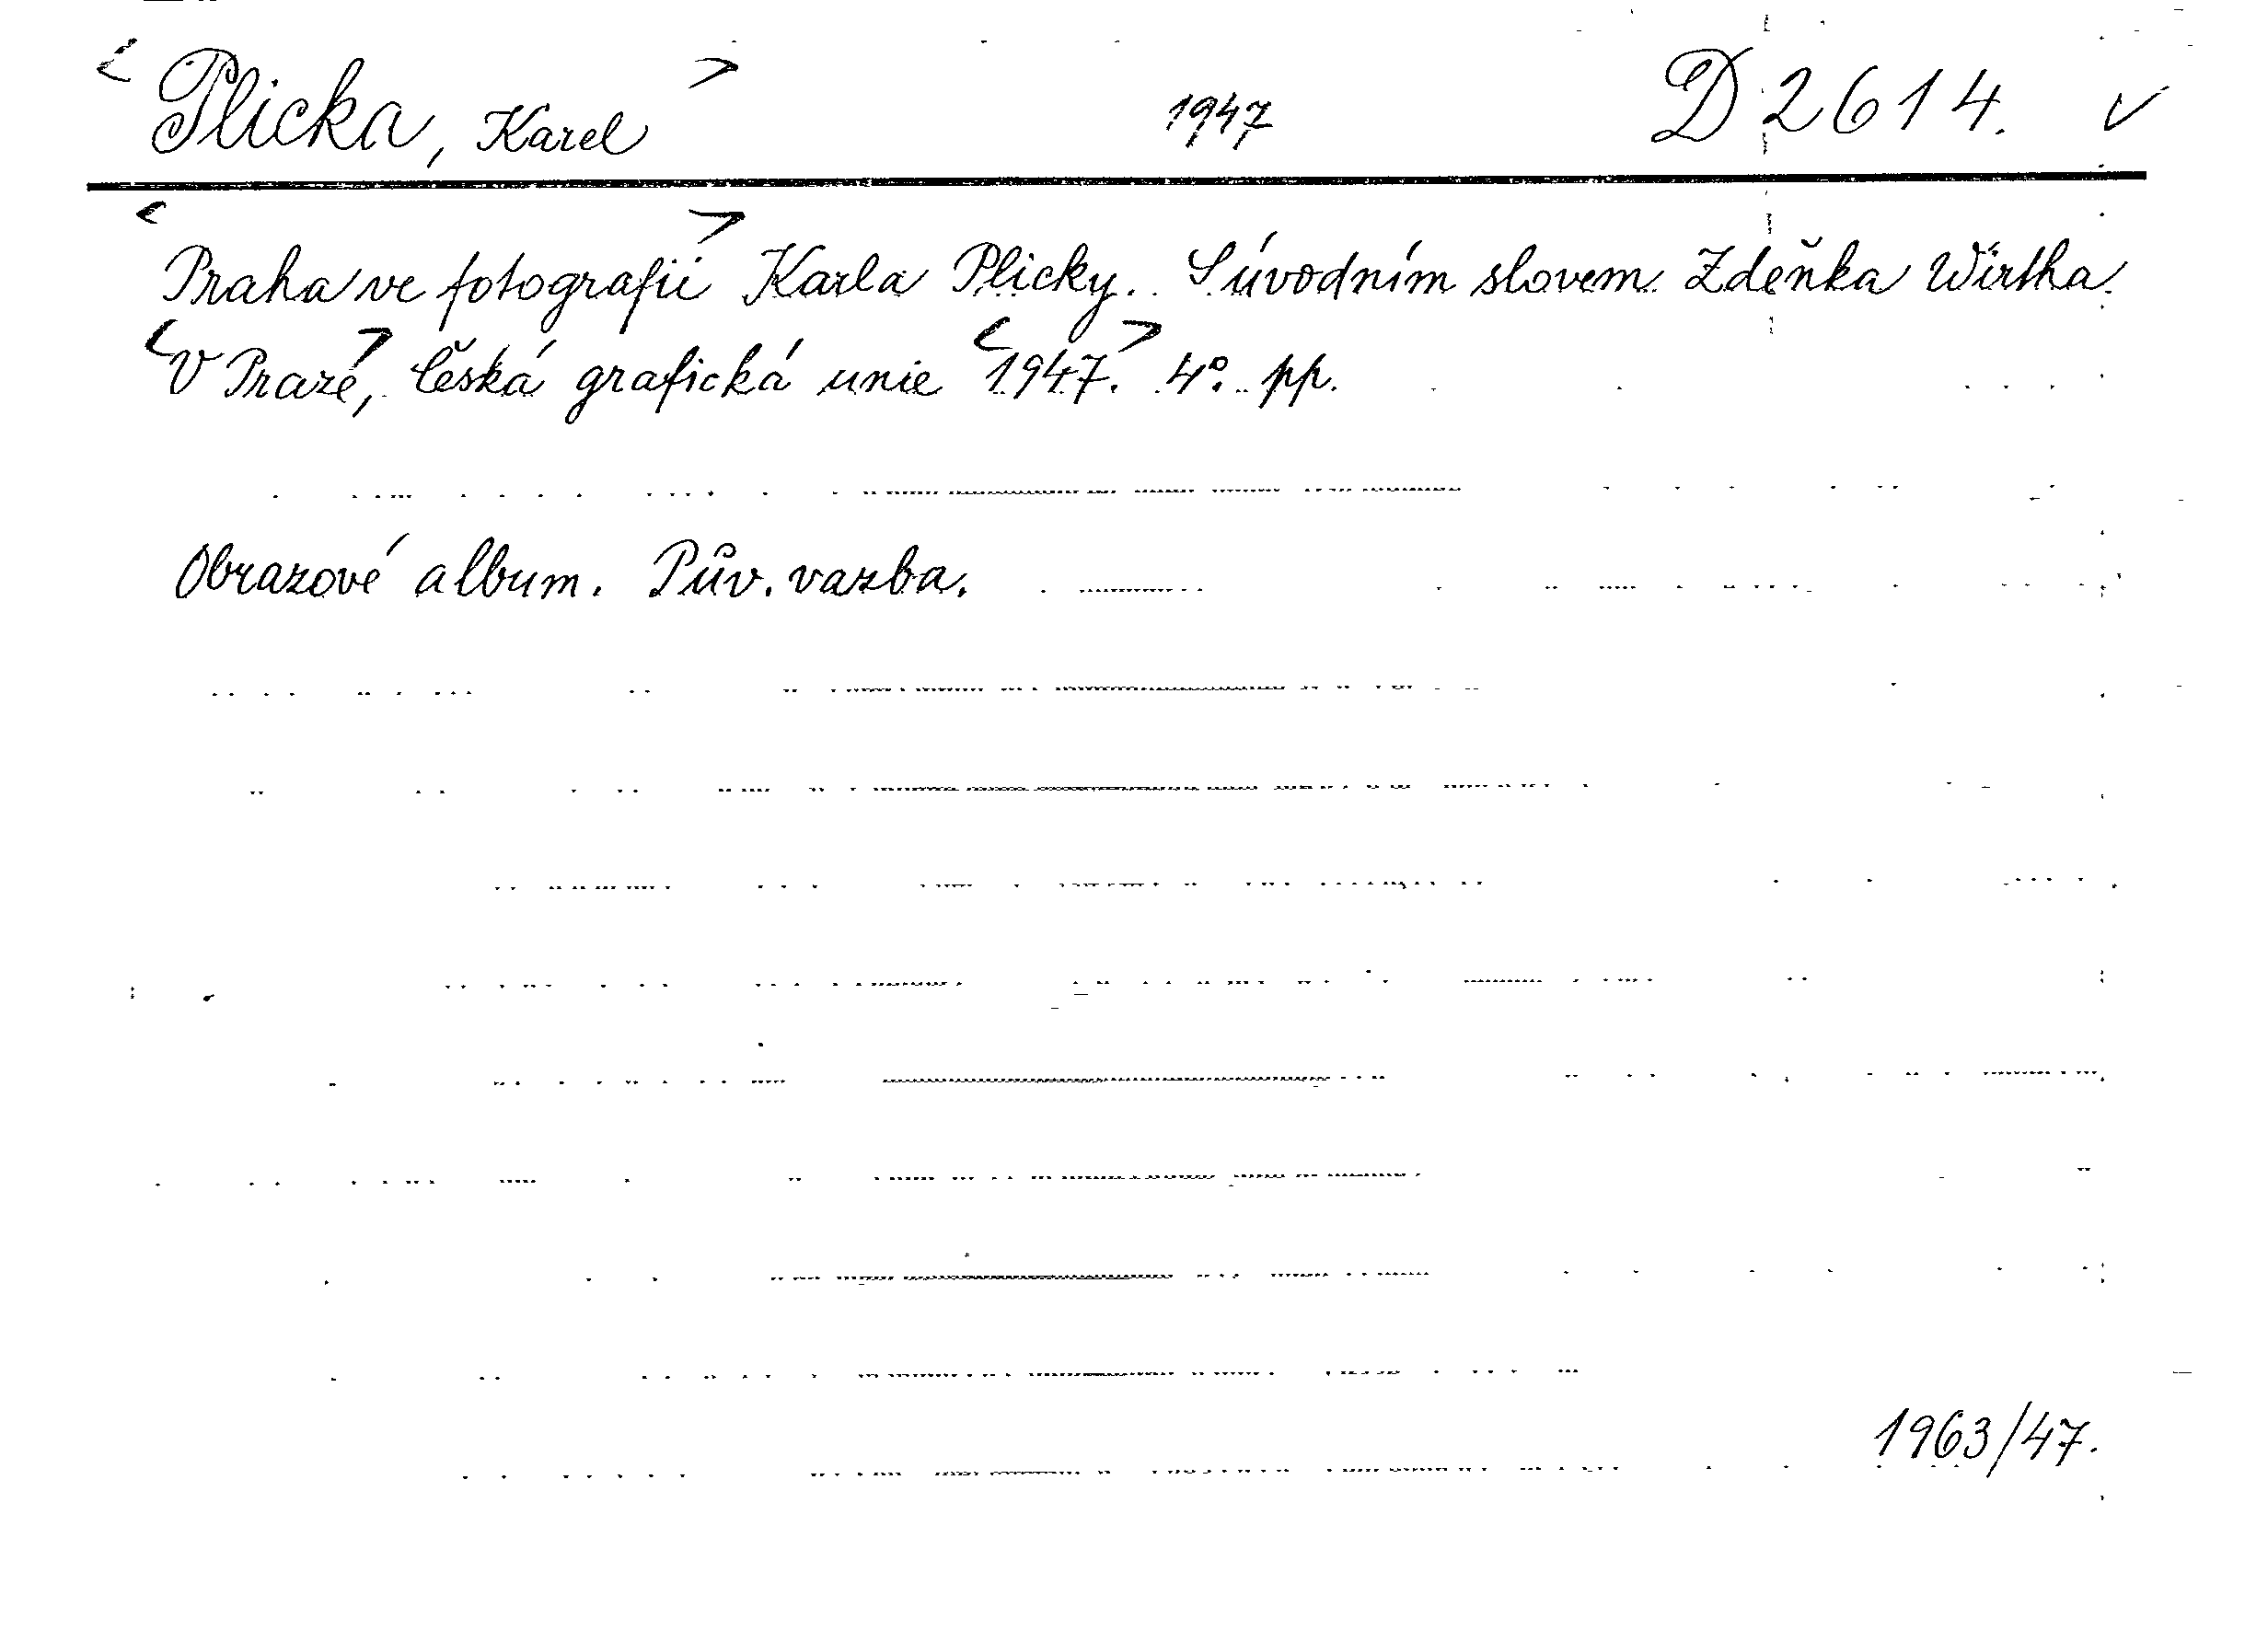 <Plicka, Karel> 1947 D 2614. ✓
<Praha ve fotografii> Karla Plicky. S úvodním slovem Zdeňka Wirtha.
<V Praze>, Česká grafická unie <1947.> 4°. pp.
Obrazové album. Pův. vazba.
1963/47.